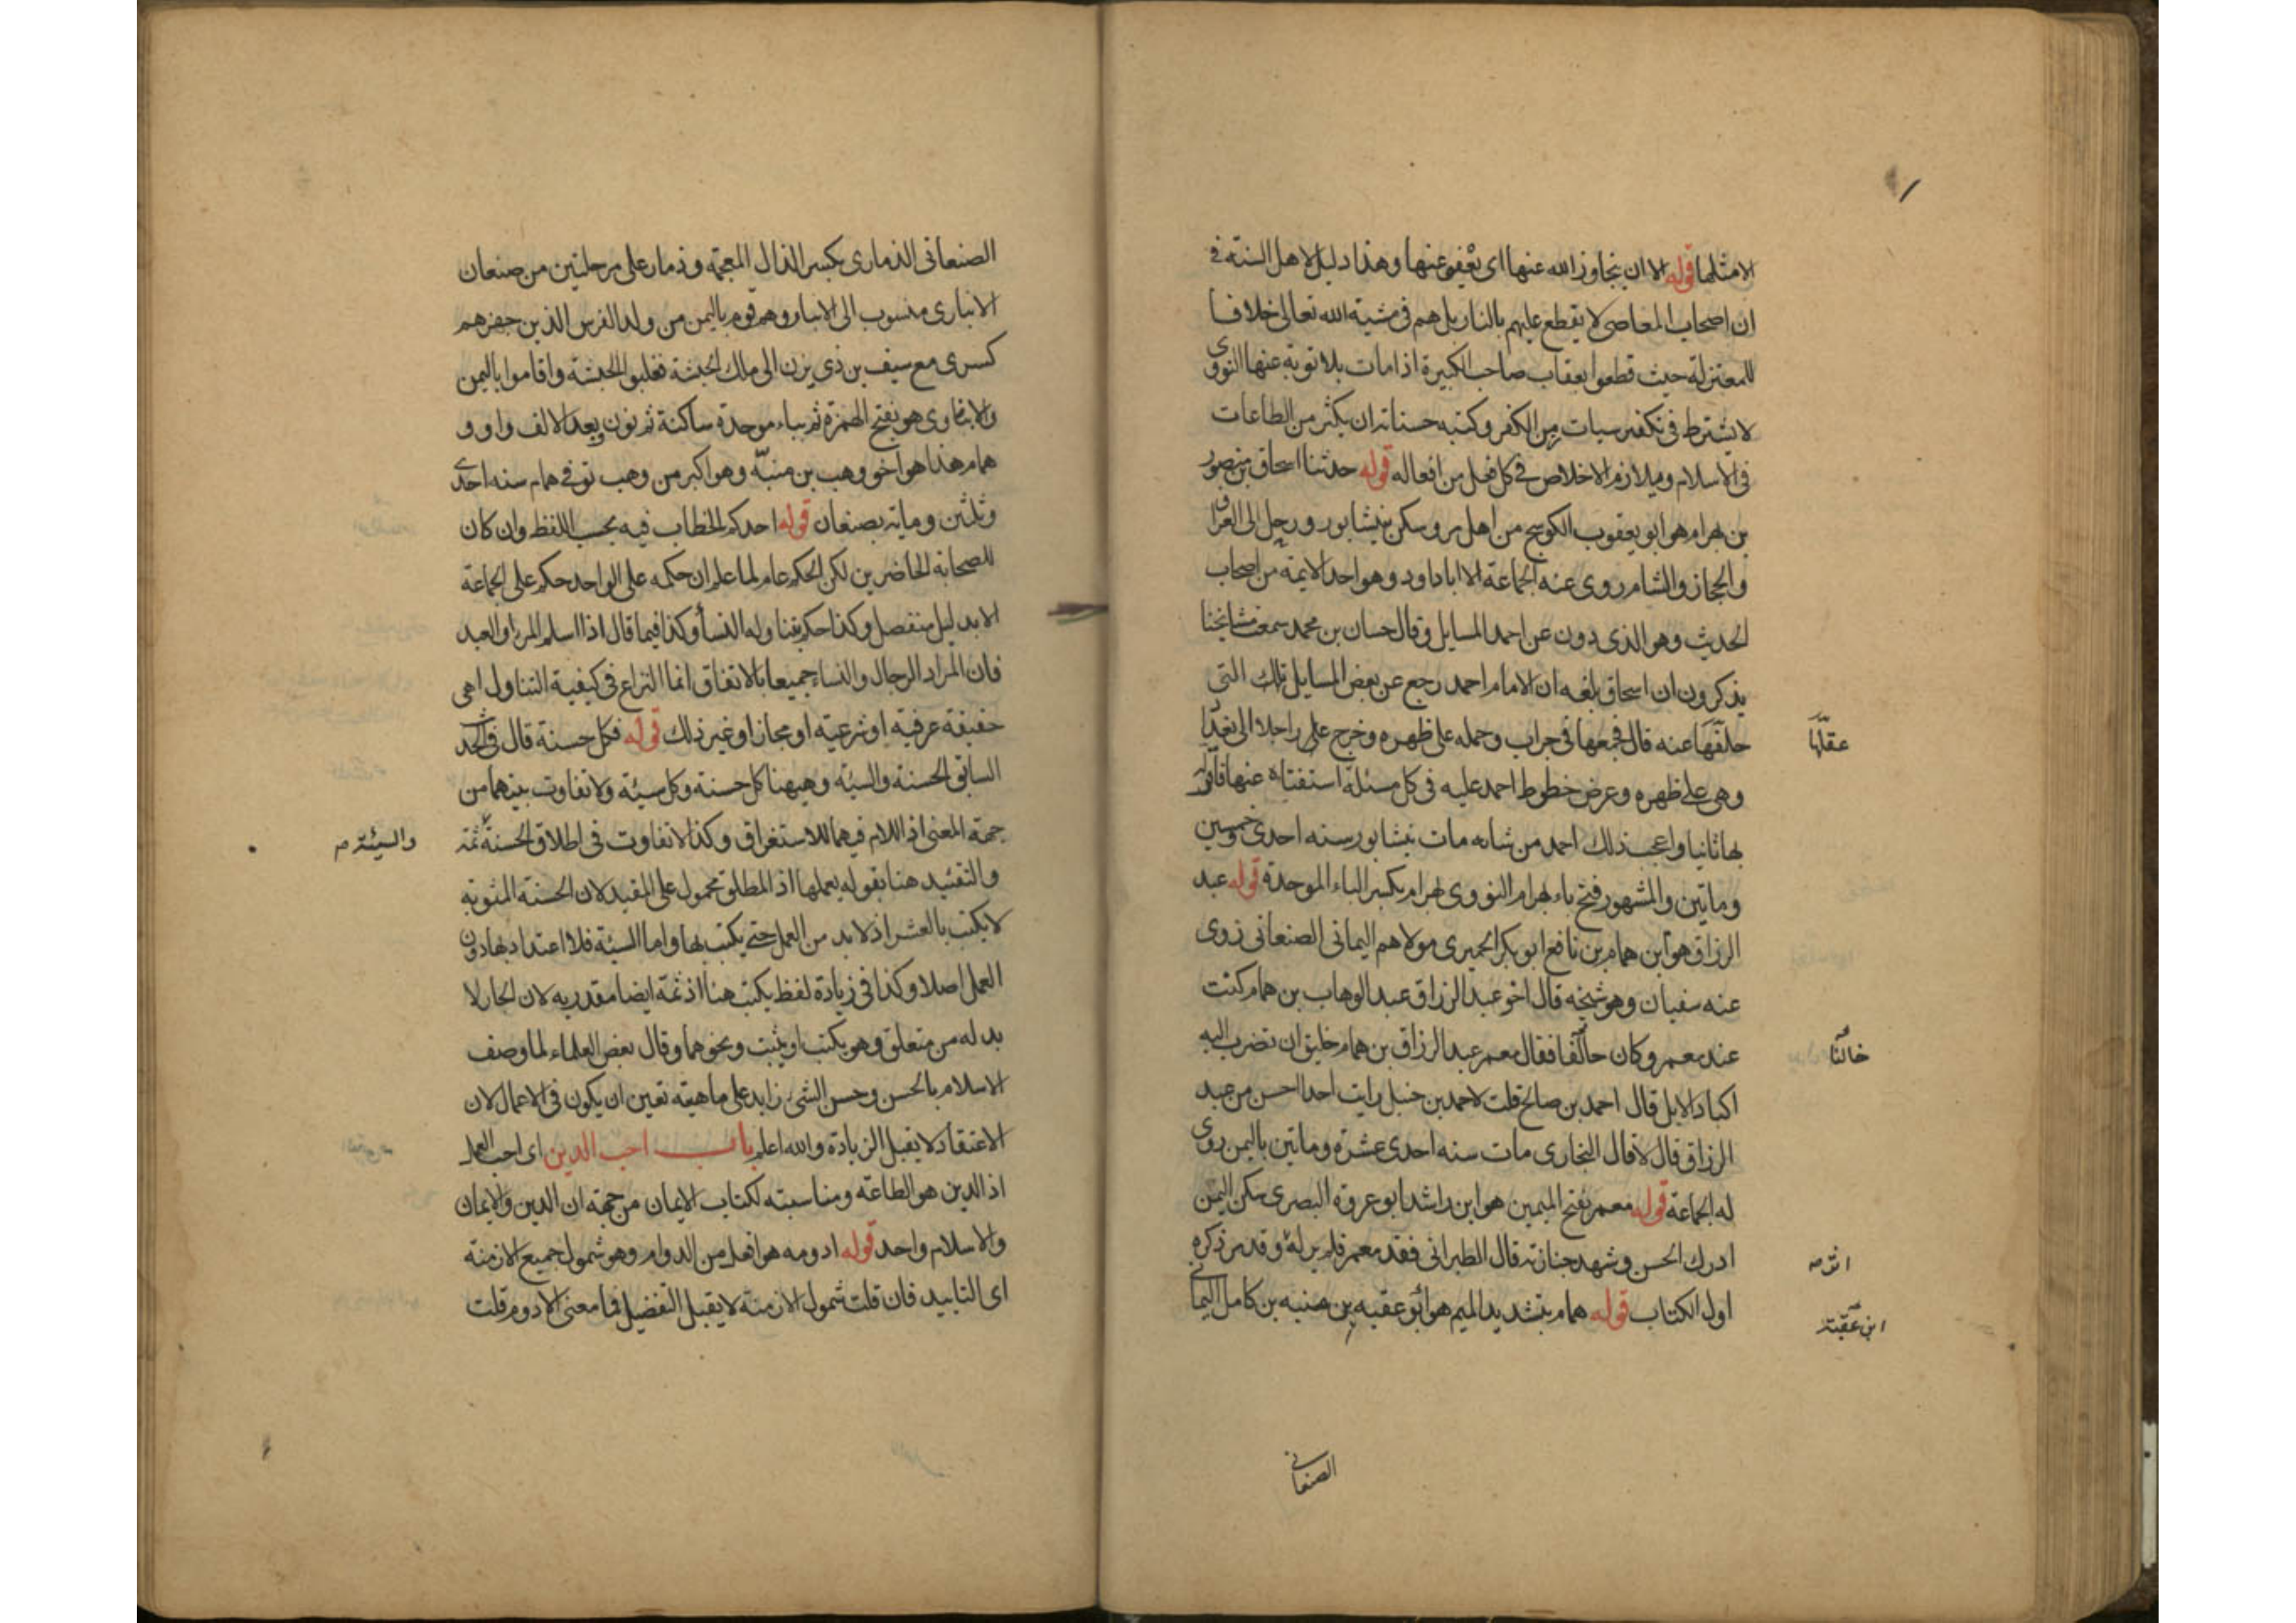 الا مثلها قوله الا ان يتجاوز الله عنها اى يعفو عنها وهذا دليل لاهل السنة فى
ان اصحاب المعاصى لا يقطع عليهم بالنار بل هم فى مشية الله تعالى خلافا
للمعتزلة حيث قطعوا بعقاب صاحب الكبيرة اذا مات بلا توبة عنها النووى
لا يشترط فى تكفير سيات زمن الكفر وكتبه حسناته ان يكثر من الطاعات
فى الاسلام ويلازم الاخلاص فى كل فعل من افعاله قوله حدثنا اسحاق بن منصور
بن بهرام هو ابو يعقوب الكوسج من اهل مرو سكن بنيشابور ورحل الى العراق
والحجاز والشام روى عنه الجماعة الا ابا داود وهو احد الايمة من اصحاب
الحديث وهو الذى دون عن احمد المسايل وقال حسان بن محمد سمعت مشايخنا
يذكرون ان اسحاق بلغه ان الامام احمد رجع عن بعض المسايل تلك التى
حلقها عنه قال فجمعها فى جراب وحمله على ظهره وخرج على راجلا الى بغداد
عقلها
وهى على ظهره وعرض خطوط احمد عليه فى كل مسئلة استفتاه عنها فاقر له
بها ثانيا واعجب ذلك احمد من شانه مات بنيشابور سنه احدى وخمسين
وماتين والمشهور فتح باء بهرام النووى بهرام بكسر الباء الموحدة قوله عبد
الرزاق هو ابن همام بن نافع ابو بكر الحميرى مولاهم اليمانى الصنعانى روى
عنه سفيان وهو شيخه قال اخو عبد الرزاق عبد الوهاب بن همام كنت
عند معمر وكان حالفا فقال معمر عبد الرزاق بن همام خليق ان تضرب اليه
خالنا
اكباد الابل قال احمد بن صالح قلت لاحمد بن حنبل رايت احدا احسن من عبد
الرزاق قال لا قال البخارى مات سنه احدى عشرة وماتين باليمن روى
له الجماعة قوله معمر بفتح الميمين هو ابن راشد ابو عروة البصرى سكن اليمن
ادرك الحسن وشهد جنازته قال الطبرانى فقد معمر فلم ير له وقد مر ذكره
اثر صح
اول الكتاب قوله همام بتشديد الميم هو ابو عقبه بن منبه بن كامل اليمانى
ابن عقبة
الصنعانى
الصنعانى الذمارى بكسر الذال المعجمة وذمار على مرحلتين من صنعان
الانبارى منسوب الى الانبار وهم قوم باليمن من ولد الفرس الذين جهزهم
كسرى مع سيف بن ذى يزن الى ملك الحبشة فغلبوا الحبشة واقاموا باليمن
والابناوى هو بفتح الهمزة ثم بباء موحدة ساكنة ثم نون وبعد الالف واو و
همام هذا هو اخو وهب بن منبّه وهو اكبر من وهب توفى همام سنه احدى
وثلثين وماية بصنعان قوله احدكم الخطاب فيه بحسب اللفظ وان كان
للصحابة الحاضرين لكن الحكم عام لما علم ان حكمه على الواحد حكم على الجماعة
الا بدليل منفصل وكذا حكم تناوله النسأ وكذا فيما قال اذا اسلم المرء او العبد
فان المراد الرجال والنساء جميعا بالاتفاق انما النزاع فى كيفية التناول اهى
حقيقة عرفية او شرعية او مجاز او غير ذلك قوله فكل حسنة قال فى الحديث
السابق الحسنة والسيئة وهيهنا كل حسنة وكل سيئة ولا تفاوت بينهما من
جهة المعنى اذ اللام فيهما للاستغراق وكذا لا تفاوت فى اطلاق الحسنة ثمة
والسيئة صح
والتقييد هنا بقوله يعملها اذ المطلق محمول على المقيد لان الحسنة المنوية
لا يكتب بالعشر اذ لا بد من العمل حتى يكتب بها واما السيئة فلا اعتداد بها دون
العمل اصلا وكذا فى زيادة لفظ يكتب هنا اذ ثمة ايضا مقدر به لان الجار لا
بد له من متعلق وهو يكتب او يثبت ونحوهما وقال بعض العلماء لما وصف
الاسلام بالحسن وحسن الشئ زايد على ماهيته تعين ان يكون فى الاعمال لان
الاعتقاد لا يقبل الزيادة والله اعلم باب احب الدين اى احب العمل
اذ الدين هو الطاعة ومناسبته لكتاب الايمان من جهة ان الدين والايمان
والاسلام واحد قوله ادومه هو افعل من الدوام وهو شمول جميع الازمنة
اى التابيد فان قلت شمول الازمنة لا يقبل التفضيل فما معنى الادوم قلت